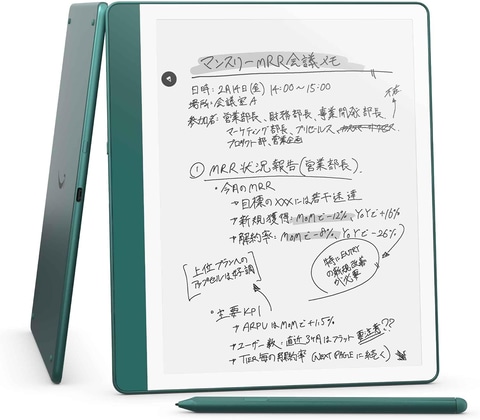 マンスリーMRR会議メモ
日時: 2月14日(金) 14:00〜15:00
場所: 会議室A
参加者: 営業部長、財務部長、事業開発部長
欠席
マーケティング部長、プリセールス、カスタマーサクセス
プロダクト部、営業企画
① MRR状況報告(営業部長)
・今月のMRR
→ 目標のXXXには若干未達
→ 新規獲得: MoMで-12%、YoYで+16%
→ 解約率: MoMで-8%、YoYで-26%
[上位プランへの
アップセルは好調]
特にENTRY
の新規改善
が必要
・主要KPI
→ ARPUはMoMで+1.5%
→ ユーザー数: 直近3ヶ月はフラット 要注意??
→ TIER毎の解約率 (NEXT PAGEに続く)